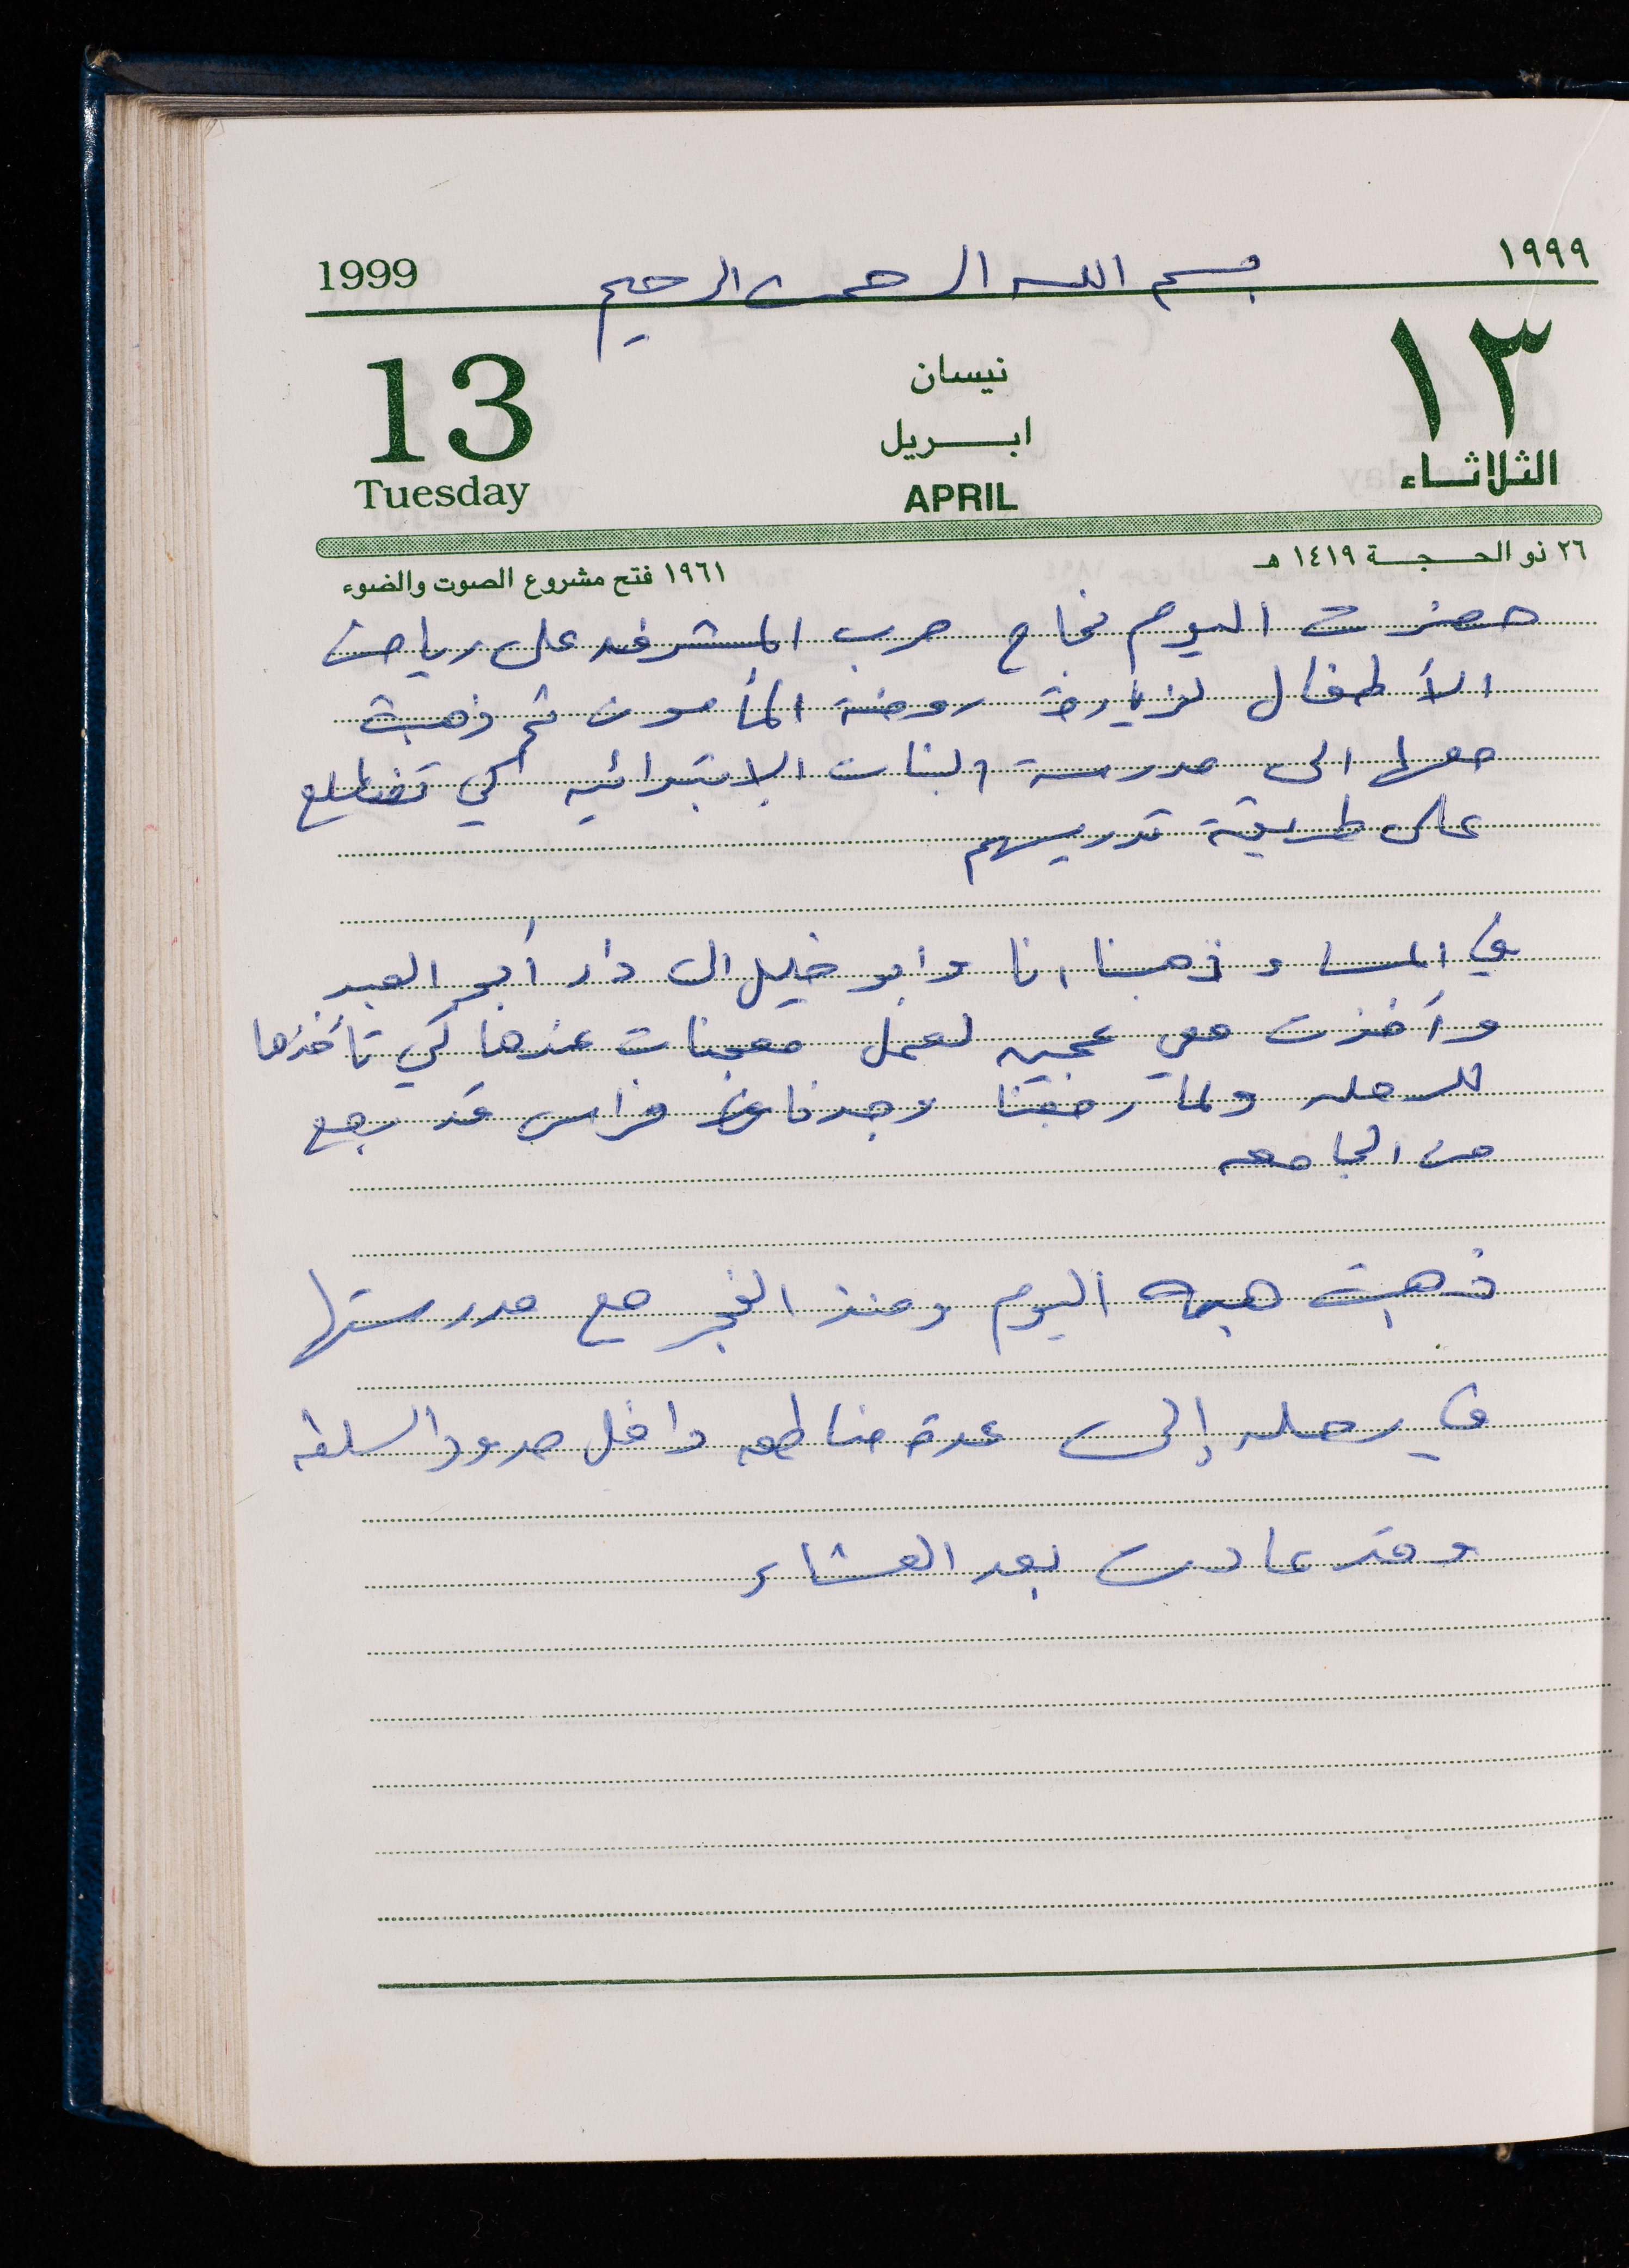 1999 بسم الله الرحمن الرحيم ١٩٩٩
13 نيسان ١٣
ابريل
Tuesday APRIL الثلاثاء
٢٦ ذو الحجة ١٤١٩ هـ
١٩٦١ فتح مشروع الصوت والضوء
حضرت اليوم نجاح حرب المشرفه على رياض
الأطفال لزيارة روضة المأمون ثم ذهبت
معها الى مدرسة البنات الابتدائيه كي تطلع
على طريقة تدريسهم
في المساء ذهبنا انا وابو خليل الى دار أبو العبد
وأخذت معي عجين لعمل معجنات عندها كي تأخذها
للرحله ولما رجعنا وجدنا فراس قد رجع
من الجامعه
ذهبت هبه اليوم ومنذ الفجر مع مدرستها
في رحله إلى عدة مناطق داخل حدود السلطه
وقد عادت بعد العشاء